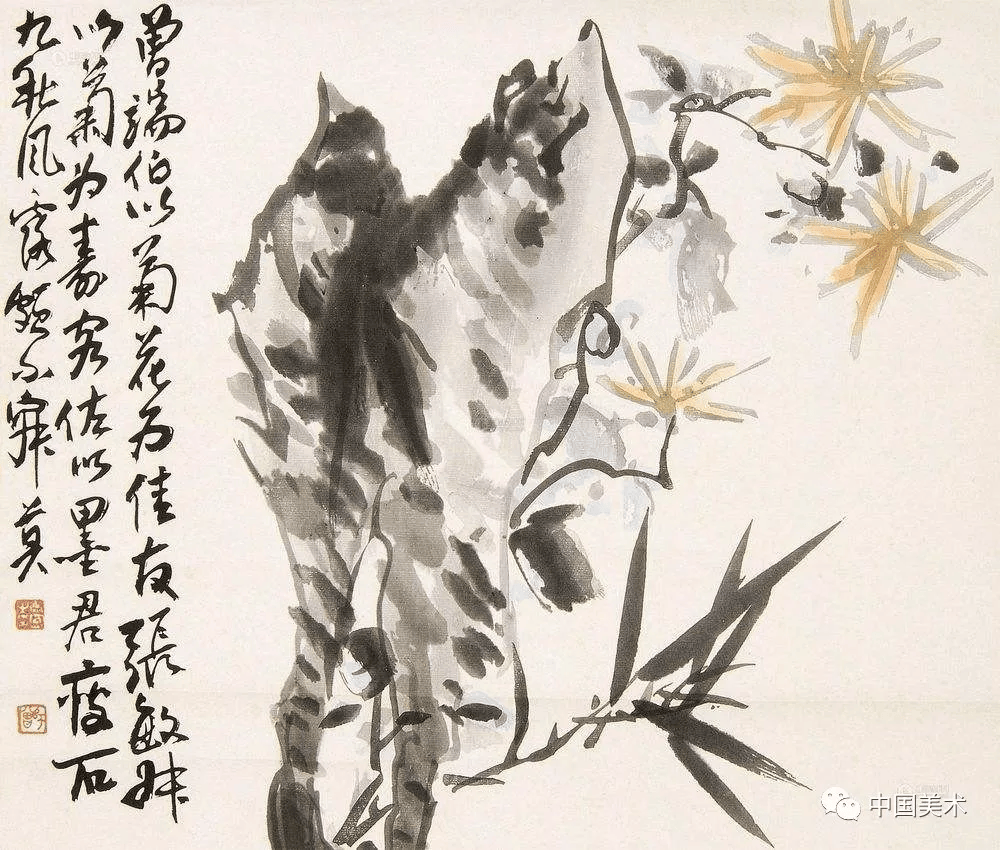 曾端伯以菊花为佳友張敏叔
以菊为壽客佐以墨君瘦石
九秋風露頗不寂莫
中国美术